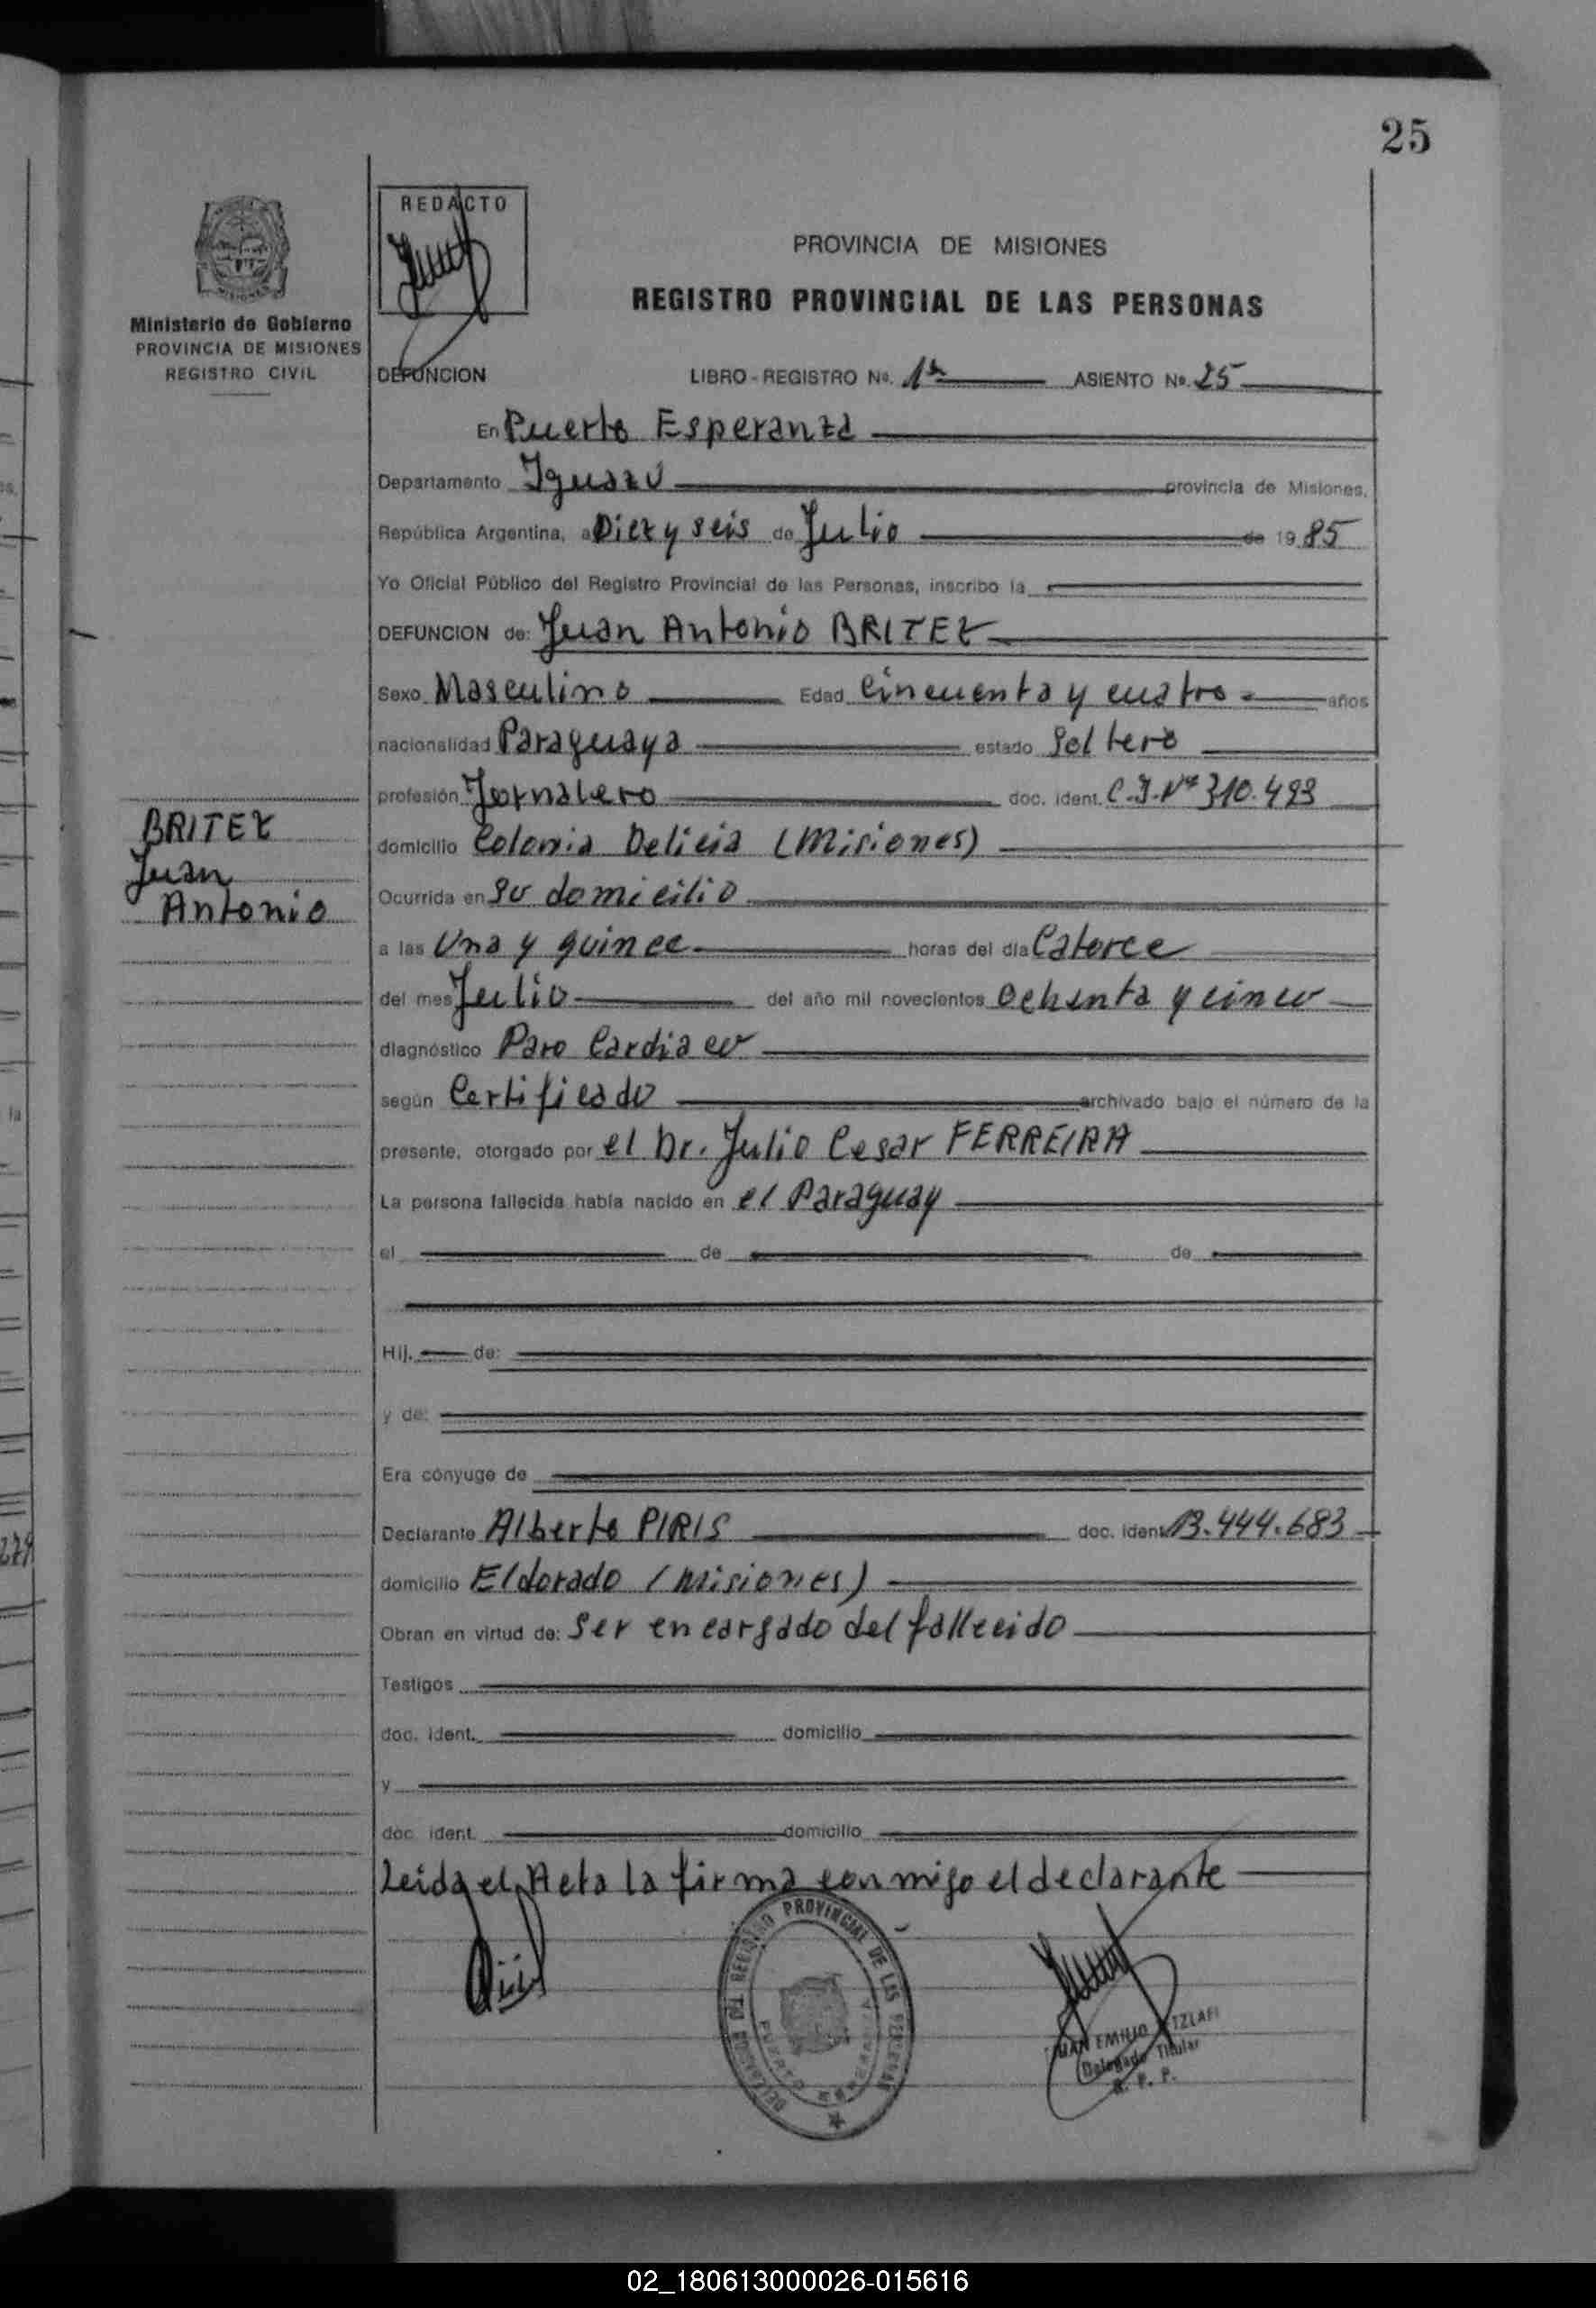 25
REDACTO
PROVINCIA DE MISIONES
REGISTRO PROVINCIAL DE LAS PERSONAS
Ministerio de Gobierno
PROVINCIA DE MISIONES
REGISTRO CIVIL
DEFUNCION LIBRO - REGISTRO Nº. 1º ASIENTO Nº. 25
En Puerto Esperanza
Departamento Iguazú provincia de Misiones,
República Argentina, a Diez y seis de Julio de 1985
Yo Oficial Público del Registro Provincial de las Personas, inscribo la
DEFUNCION de: Juan Antonio BRITEZ
Sexo Masculino Edad Cincuenta y cuatro años
nacionalidad Paraguaya estado Soltero
profesión Jornalero doc. ident. C.I. Nº 310.493
BRITEZ
Juan
Antonio
domicilio Colonia Delicia (Misiones)
Ocurrida en su domicilio
a las Una y quince horas del día Catorce
del mes Julio del año mil novecientos Ochenta y cinco
diagnóstico Paro Cardiaco
según Certificado archivado bajo el número de la
presente, otorgado por el Dr. Julio Cesar FERREIRA
La persona fallecida había nacido en el Paraguay
el de de
Hij. de:
y de:
Era cónyuge de
Declarante Alberto PIRIS doc. ident. 13.444.683
domicilio Eldorado (Misiones)
Obran en virtud de: Ser encargado del fallecido
Testigos
doc. ident. domicilio
y
doc. ident. domicilio
Leida el Acta la firma conmigo el declarante
REGISTRO PROVINCIAL DE LAS PERSONAS
PUERTO ESPERANZA
JUAN EMILIO
Delegado Titular
R. P. P.
02_180613000026-015616